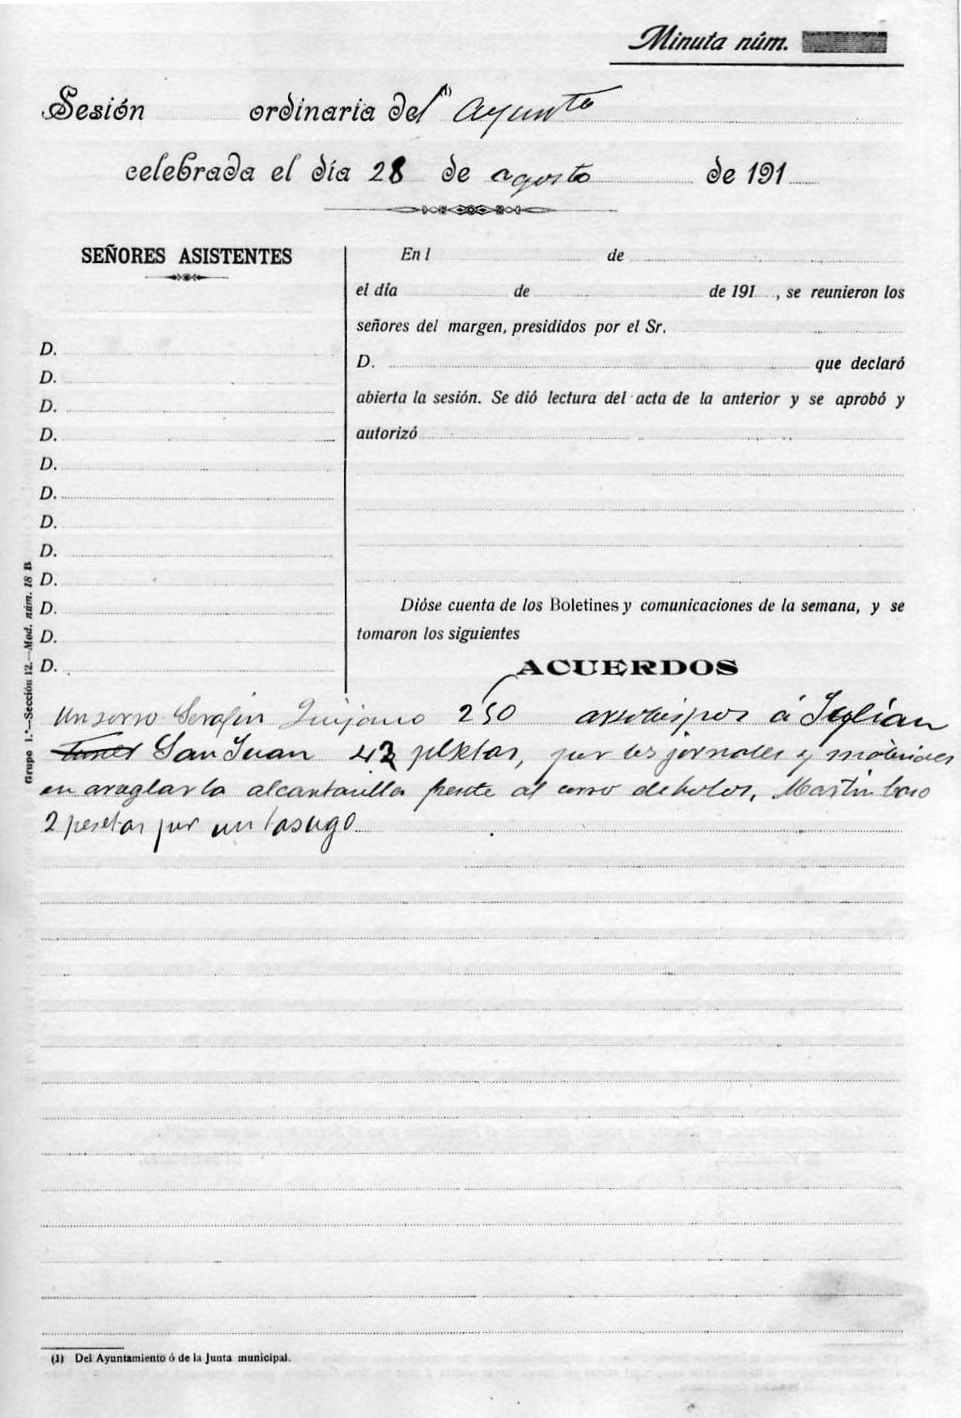 Minuta núm.
Sesión ordinaria del (1) Ayunto
celebrada el día 28 de agosto de 191
SEÑORES ASISTENTES
D.
D.
D.
D.
D.
D.
D.
D.
D.
D.
D.
D.
En l de
el día de de 191 , se reunieron los
señores del margen, presididos por el Sr.
D. que declaró
abierta la sesión. Se dió lectura del acta de la anterior y se aprobó y
autorizó
Dióse cuenta de los Boletines y comunicaciones de la semana, y se
tomaron los siguientes
ACUERDOS
Un Serafin Quijano 250 á Julian
San Juan 42 pesetas, por los jornales y materiales
en arreglar la alcantarilla frente al corro de bolos, Martin
2 pesetas por un tasugo
Grupo 1.º—Sección 12.—Mod. núm. 18 B
(1) Del Ayuntamiento ó de la Junta municipal.